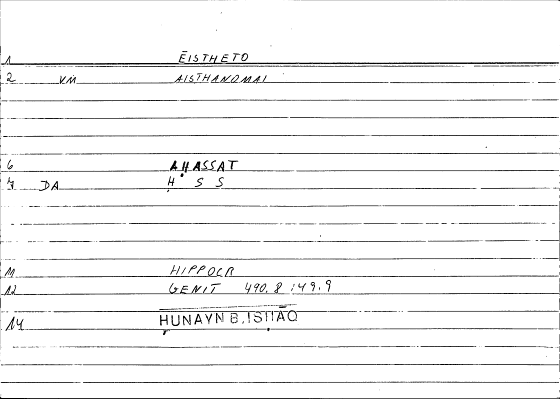 1 ĒISTHETO
2 VM AISTHANOMAI
6 AḤASSAT
7 DA Ḥ S S
11 HIPPOCR
12 GENIT 490.8 ; 49.9
14 ḤUNAYN B. ISḤĀQ